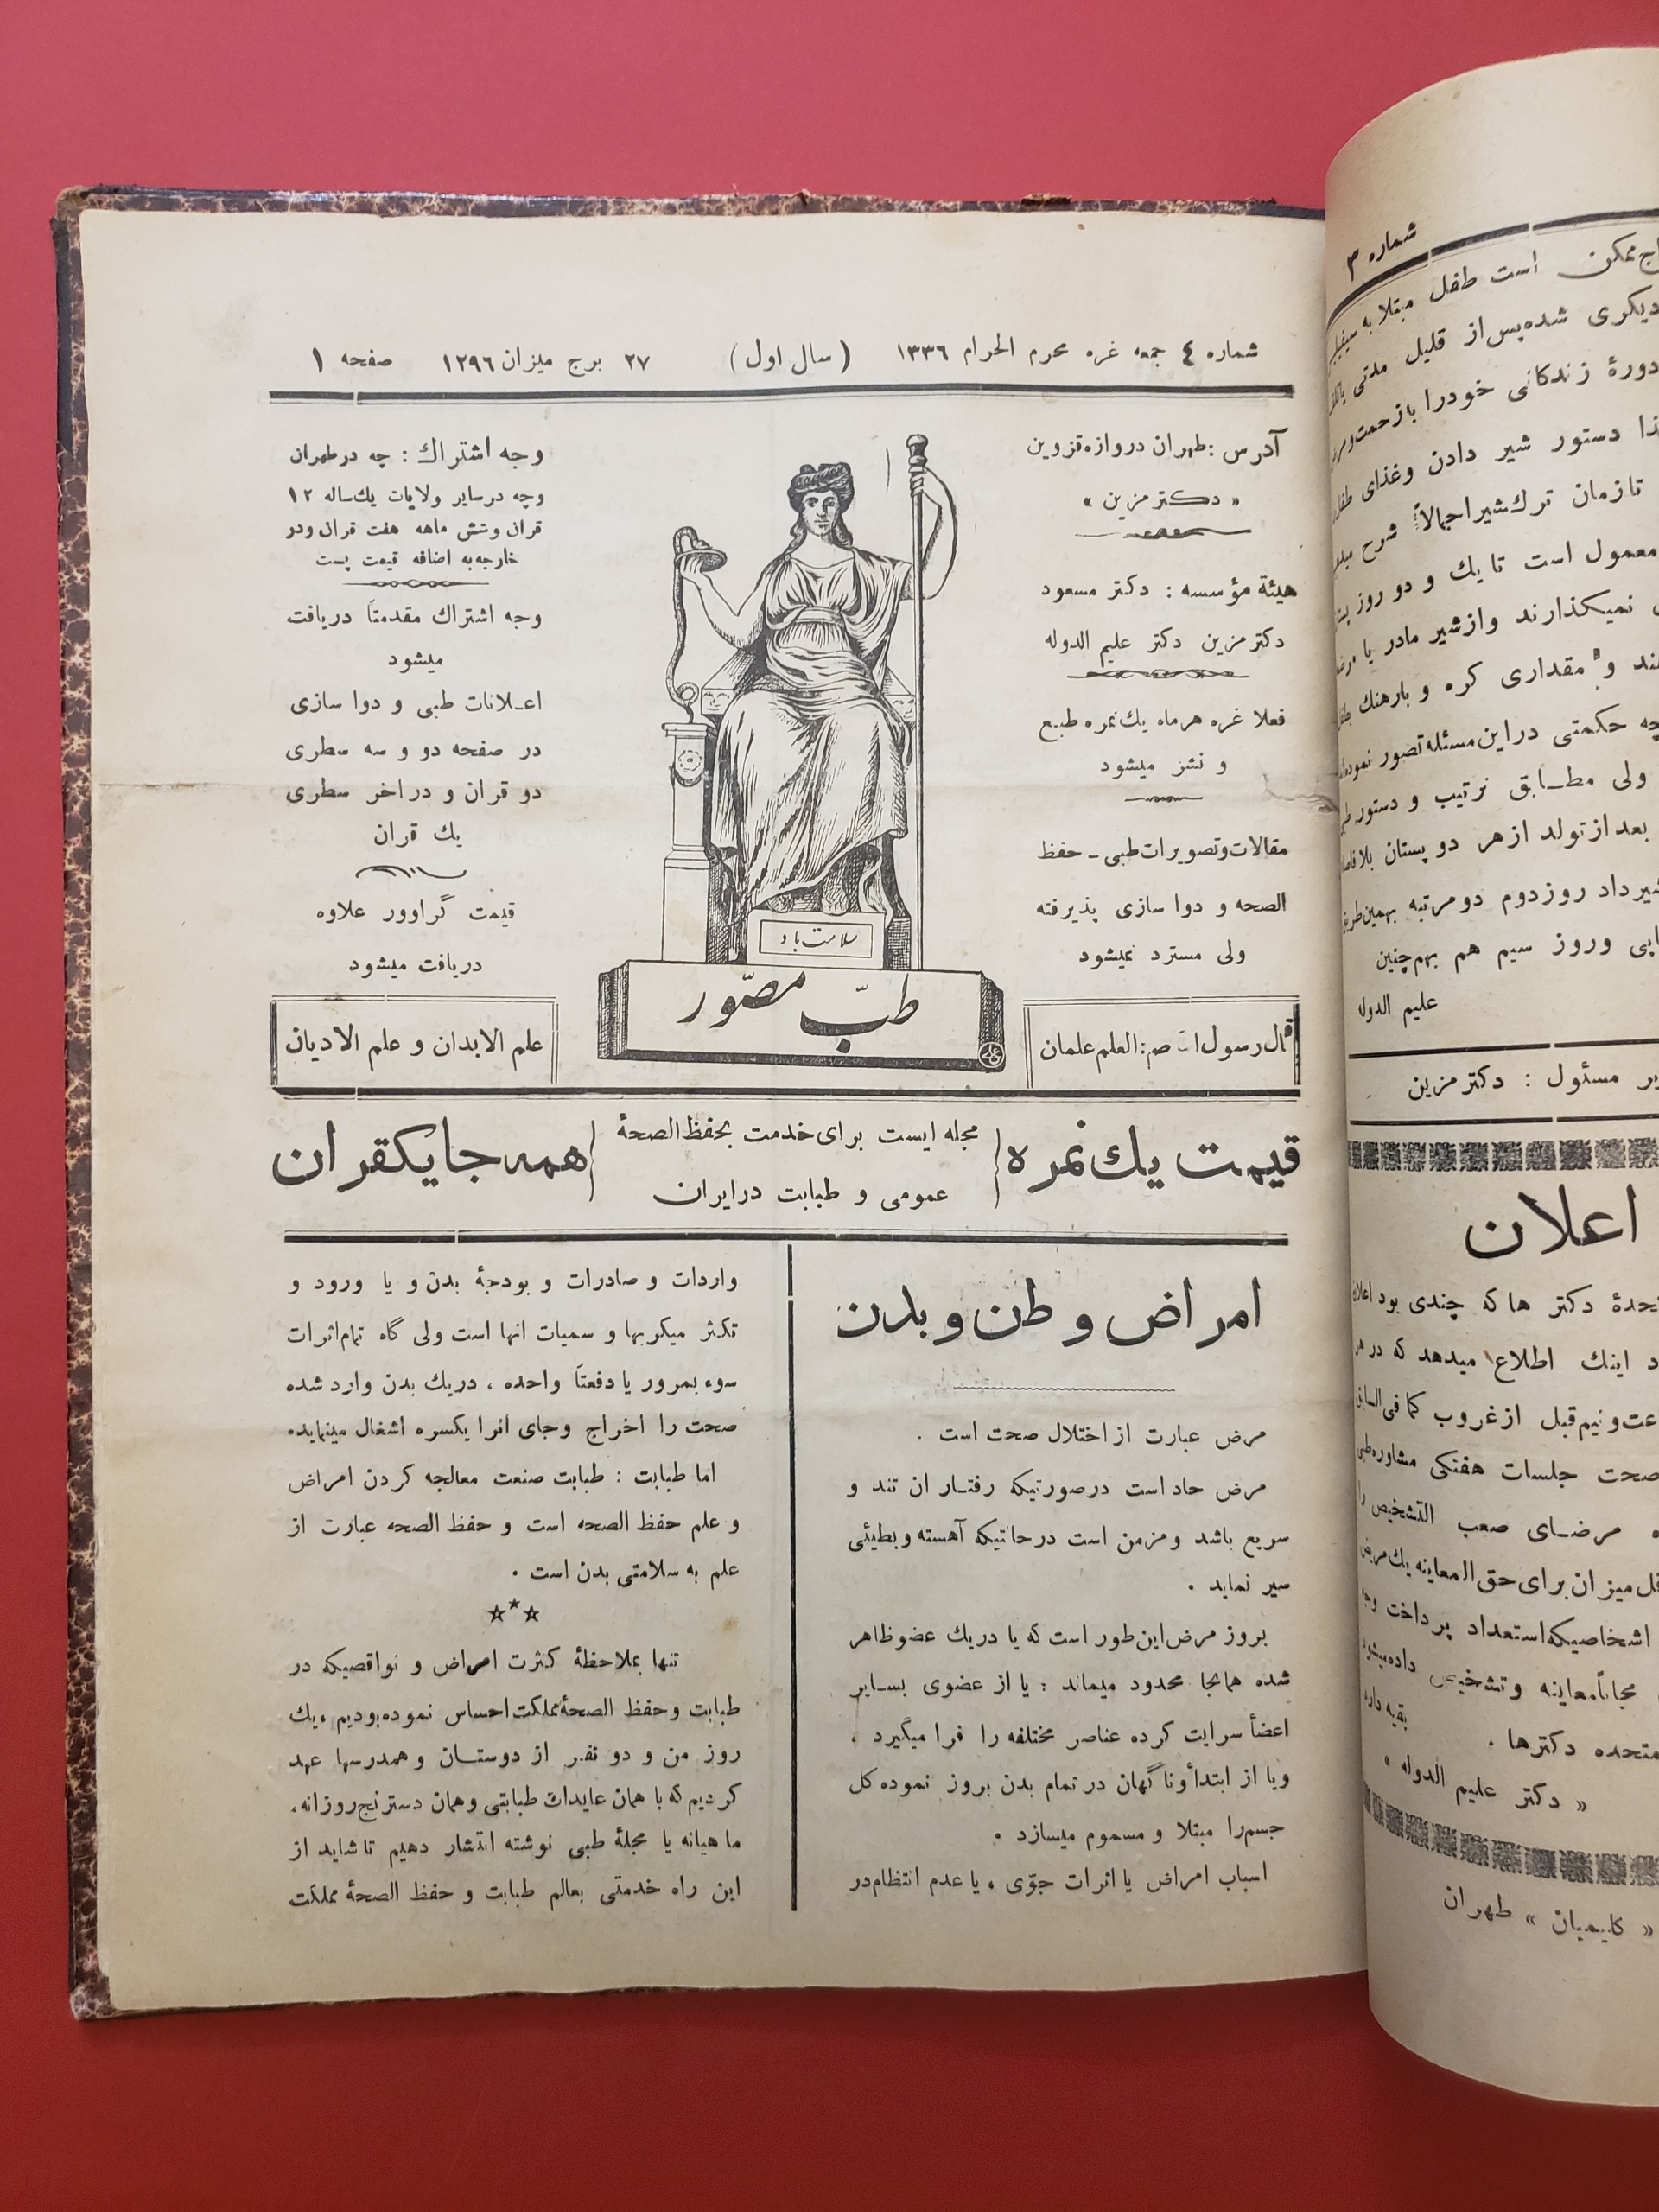 شماره ٤ جمعه غره محرم الحرام ١٣٣٦ (سال اول) ٢٧ برج ميزان ١٢٩٦ صفحه ١
آدرس : طهران دروازه قزوين
« دكتر مزين »
هيئة مؤسسه : دكتر مسعود
دكتر مزين دكتر عليم الدوله
فعلا غره هر ماه يك نمره طبع
و نشر ميشود
مقالات و تصويرات طبى ـ حفظ
الصحه و دوا سازى پذيرفته
ولى مسترد نميشود
قال رسول ص : العلم علمان
سلامت باد
طبّ مصّور
وجه اشتراك : چه در طهران
وچه در ساير ولايات يك ساله ١٢
قران وشش ماهه هفت قران ودر
خارجه به اضافه قيمت پست
وجه اشتراك مقدمتاً دريافت
ميشود
اعـلانات طبى و دوا سازى
در صفحه دو و سه سطرى
دو قران و در اخر سطرى
يك قران
قيمت گراوور علاوه
دريافت ميشود
علم الابدان و علم الاديان
قيمت يك نمره
مجله ايست براى خدمت بحفظ الصحهٔ
عمومى و طبابت در ايران
همه جا يكقران
امراض و طن و بدن
مرض عبارت از اختلال صحت است .
مرض حاد است درصورتيكه رفتـار ان تند و
سريع باشد ومزمن است درحالتيكه آهسته و بطيئى
سير نمايد .
بروز مرض اين طور است كه يا دريك عضو ظاهر
شده همانجا محدود ميماند : يا از عضوى بسـاير
اعضأ سرايت كرده عناصر مختلفه را فرا ميگيرد ،
ويا از ابتدأ وناگهان در تمام بدن بروز نموده كل
جسم را مبتلا و مسموم ميسازد .
اسباب امراض يا اثرات جوّى ، يا عدم انتظام در
واردات و صادرات و بودجهٔ بدن و يا ورود و
تكثر ميكربها و سميات انها است ولى گاه تمام اثرات
سوء بمرور يا دفعتاً واحده ، دريك بدن وارد شده
صحت را اخراج وجاى انرا يكسره اشغال مينمايده
اما طبابت : طبابت صنعت معالجه كردن امراض
و علم حفظ الصحه است و حفظ الصحه عبارت از
علم به سلامتى بدن است .
☆*☆
تنها بملاحظهٔ كثرت امراض و نواقصيكه در
طبابت وحفظ الصحهٔ مملكت احساس نموده بوديم ، يك
روز من و دو نفر از دوستـان و همدرسها عهد
كرديم كه با همان عايدات طبابتى وهمان دسترنج روزانه ،
ماهيانه يا مجلهٔ طبى نوشته انتشار دهيم تا شايد از
اين راه خدمتى بعالم طبابت و حفظ الصحهٔ مملكت
شماره ٣
ممكن است طفل مبتلا به
ديگرى شده پس از قليل مدتى
دورهٔ زندگانى خودرا با زحمت
دستور شير دادن وغذاى
تا زمان ترك شير اجمالاً شرح
معمول است تا يك و دو روز
نميكذارند واز شير مادر يا
و مقدارى كره و بارهنك
حكمتى در اين مسئله تصور
ولى مطـابق ترتيب و دستور
بعد از تولد از هر دو پستان
شير داد روز دوم دو مرتبه بهمين طريق
وروز سيم هم بهم چنين
عليم الدوله
مسئول : دكتر مزين
اعلان
دكتر ها كه چندى بود
اينك اطلاع ميدهد كه در
ونيم قبل از غروب كما فى السابق
صحت جلسات هفتكى مشاوره
مرضـاى صعب التشخيص را
ميزان براى حق المعاينه يك
اشخاصيكه استعداد پرداخت
مجاناً معاينه وتشخيص داده ميشود
متحده دكترها .
« دكتر عليم الدوله »
« كليميان » طهران